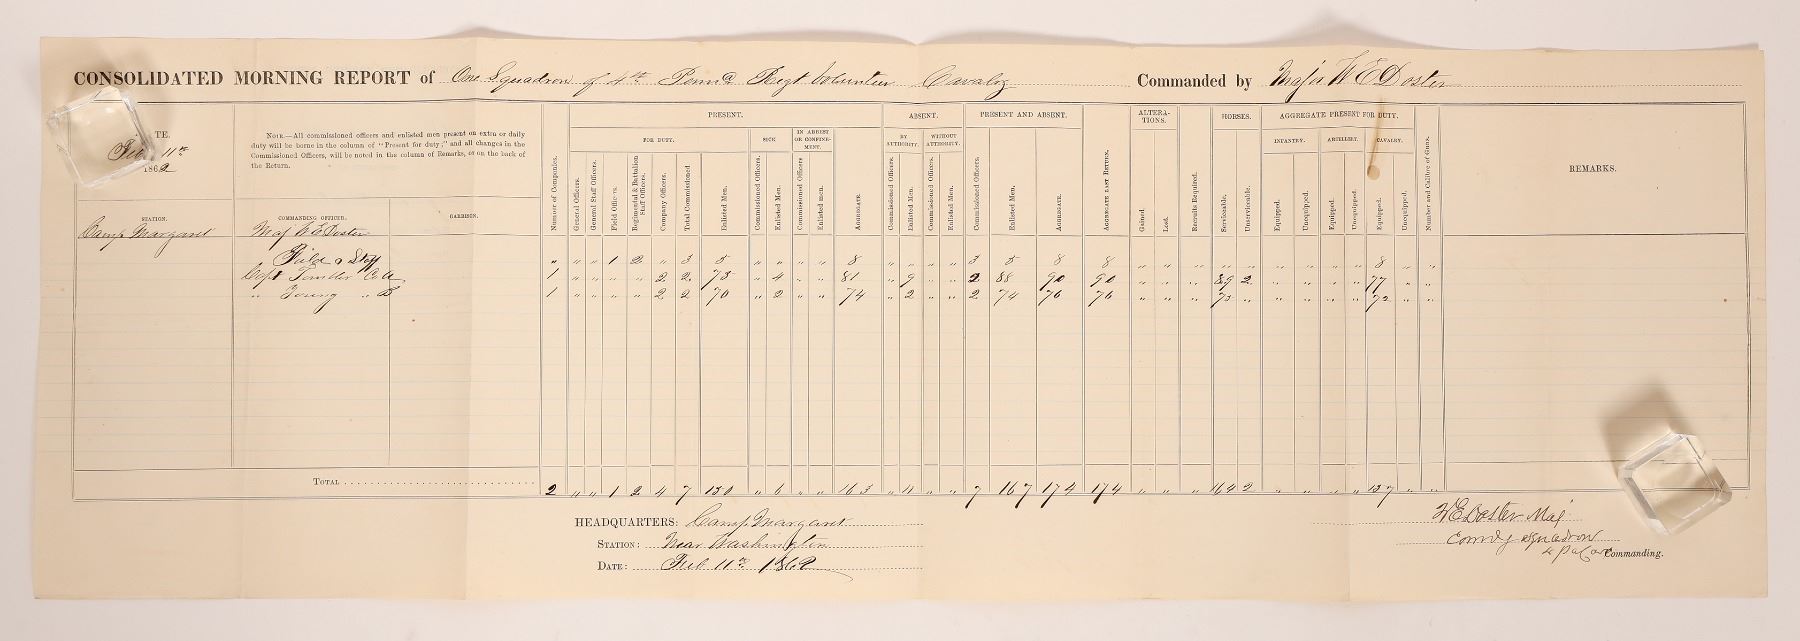 CONSOLIDATED MORNING REPORT of One Squadron of 4th Penna Regt Volunteer Cavalry Commanded by Major W E Doster
TE.
Feb 11th
1862
NOTE.—All commissioned officers and enlisted men present on extra or daily
duty will be borne in the column of "Present for duty;" and all changes in the
Commissioned Officers, will be noted in the column of Remarks, or on the back of
the Return.
STATION. COMMANDING OFFICER. GARRISON.
Number of Companies.
PRESENT.
FOR DUTY. SICK IN ARREST OR CONFINEMENT.
General Officers. General Staff Officers. Field Officers. Regimental & Battalion Staff Officers. Company Officers. Total Commissioned Enlisted Men. Commissioned Officers. Enlisted Men. Commissioned Officers Enlisted men. AGGREGATE.
ABSENT.
BY AUTHORITY. WITHOUT AUTHORITY.
Commissioned Officers. Enlisted Men. Commissioned Officers. Enlisted Men.
PRESENT AND ABSENT.
Commissioned Officers. Enlisted Men. AGGREGATE.
AGGREGATE LAST RETURN.
ALTERATIONS.
Gained. Lost.
Recruits Required.
HORSES.
Serviceable. Unserviceable.
AGGREGATE PRESENT FOR DUTY.
INFANTRY. ARTILLERY. CAVALRY.
Equipped. Unequipped. Equipped. Unequipped. Equipped. Unequipped.
Number and Calibre of Guns.
REMARKS.
Camp Margaret Maj W E Doster
Field & Staff " " " 1 2 " 3 5 " " " " 8 " " " " 3 5 8 8 " " " " " " " " " 8 " "
Capt Co A 1 " " " " 2 2 73 " 4 " " 81 " 9 " " 2 88 90 90 " " " 89 2 " " " " 77 " "
" Young " B 1 " " " " 2 2 70 " 2 " " 74 " 2 " " 2 74 76 76 " " " 75 " " " " " 72 " "
TOTAL 2 " " 1 2 4 7 150 " 6 " " 163 " 11 " " 7 167 174 174 " " " 164 2 " " " " 157 " "
HEADQUARTERS: Camp Margaret
STATION: Near Washington
DATE: Feb 11th 1862
W E Doster Maj
Comdg Squadron
4 Pa Cav Commanding.